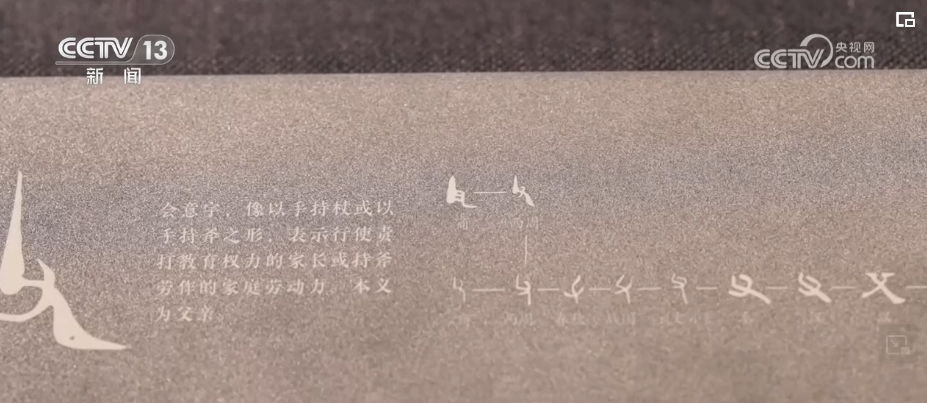 CCTV 13
新闻
央视网
CCTV.com
会意字，像以手持杖或以
手持斧之形，表示行使责
打教育权力的家长或持斧
劳作的家庭劳动力。本义
为父亲。
商
西周
西周
春秋
战国
秦
汉